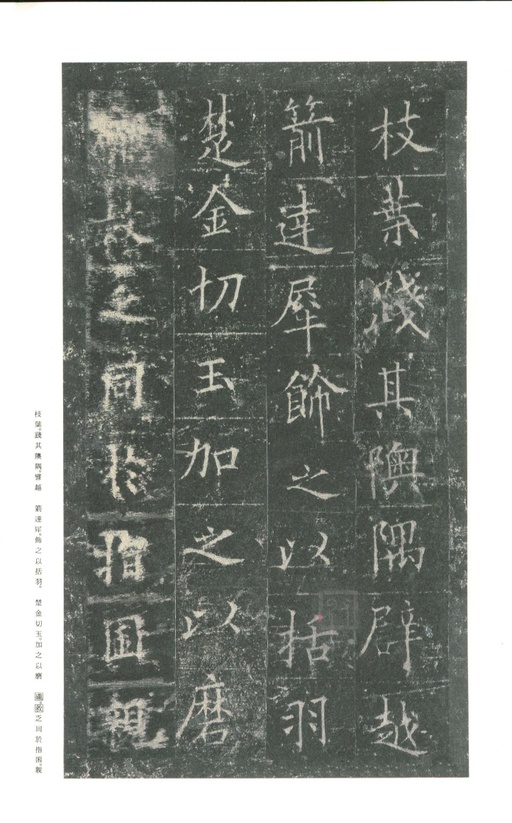 枝葉踐其隩隅辟越
箭達犀飾之以括羽
楚金切玉加之以磨
故之同於指囷親
枝葉。踐其隩隅。譬越
箭達犀。飾之以括羽。
楚金切玉。加之以磨
之同於指囷。親